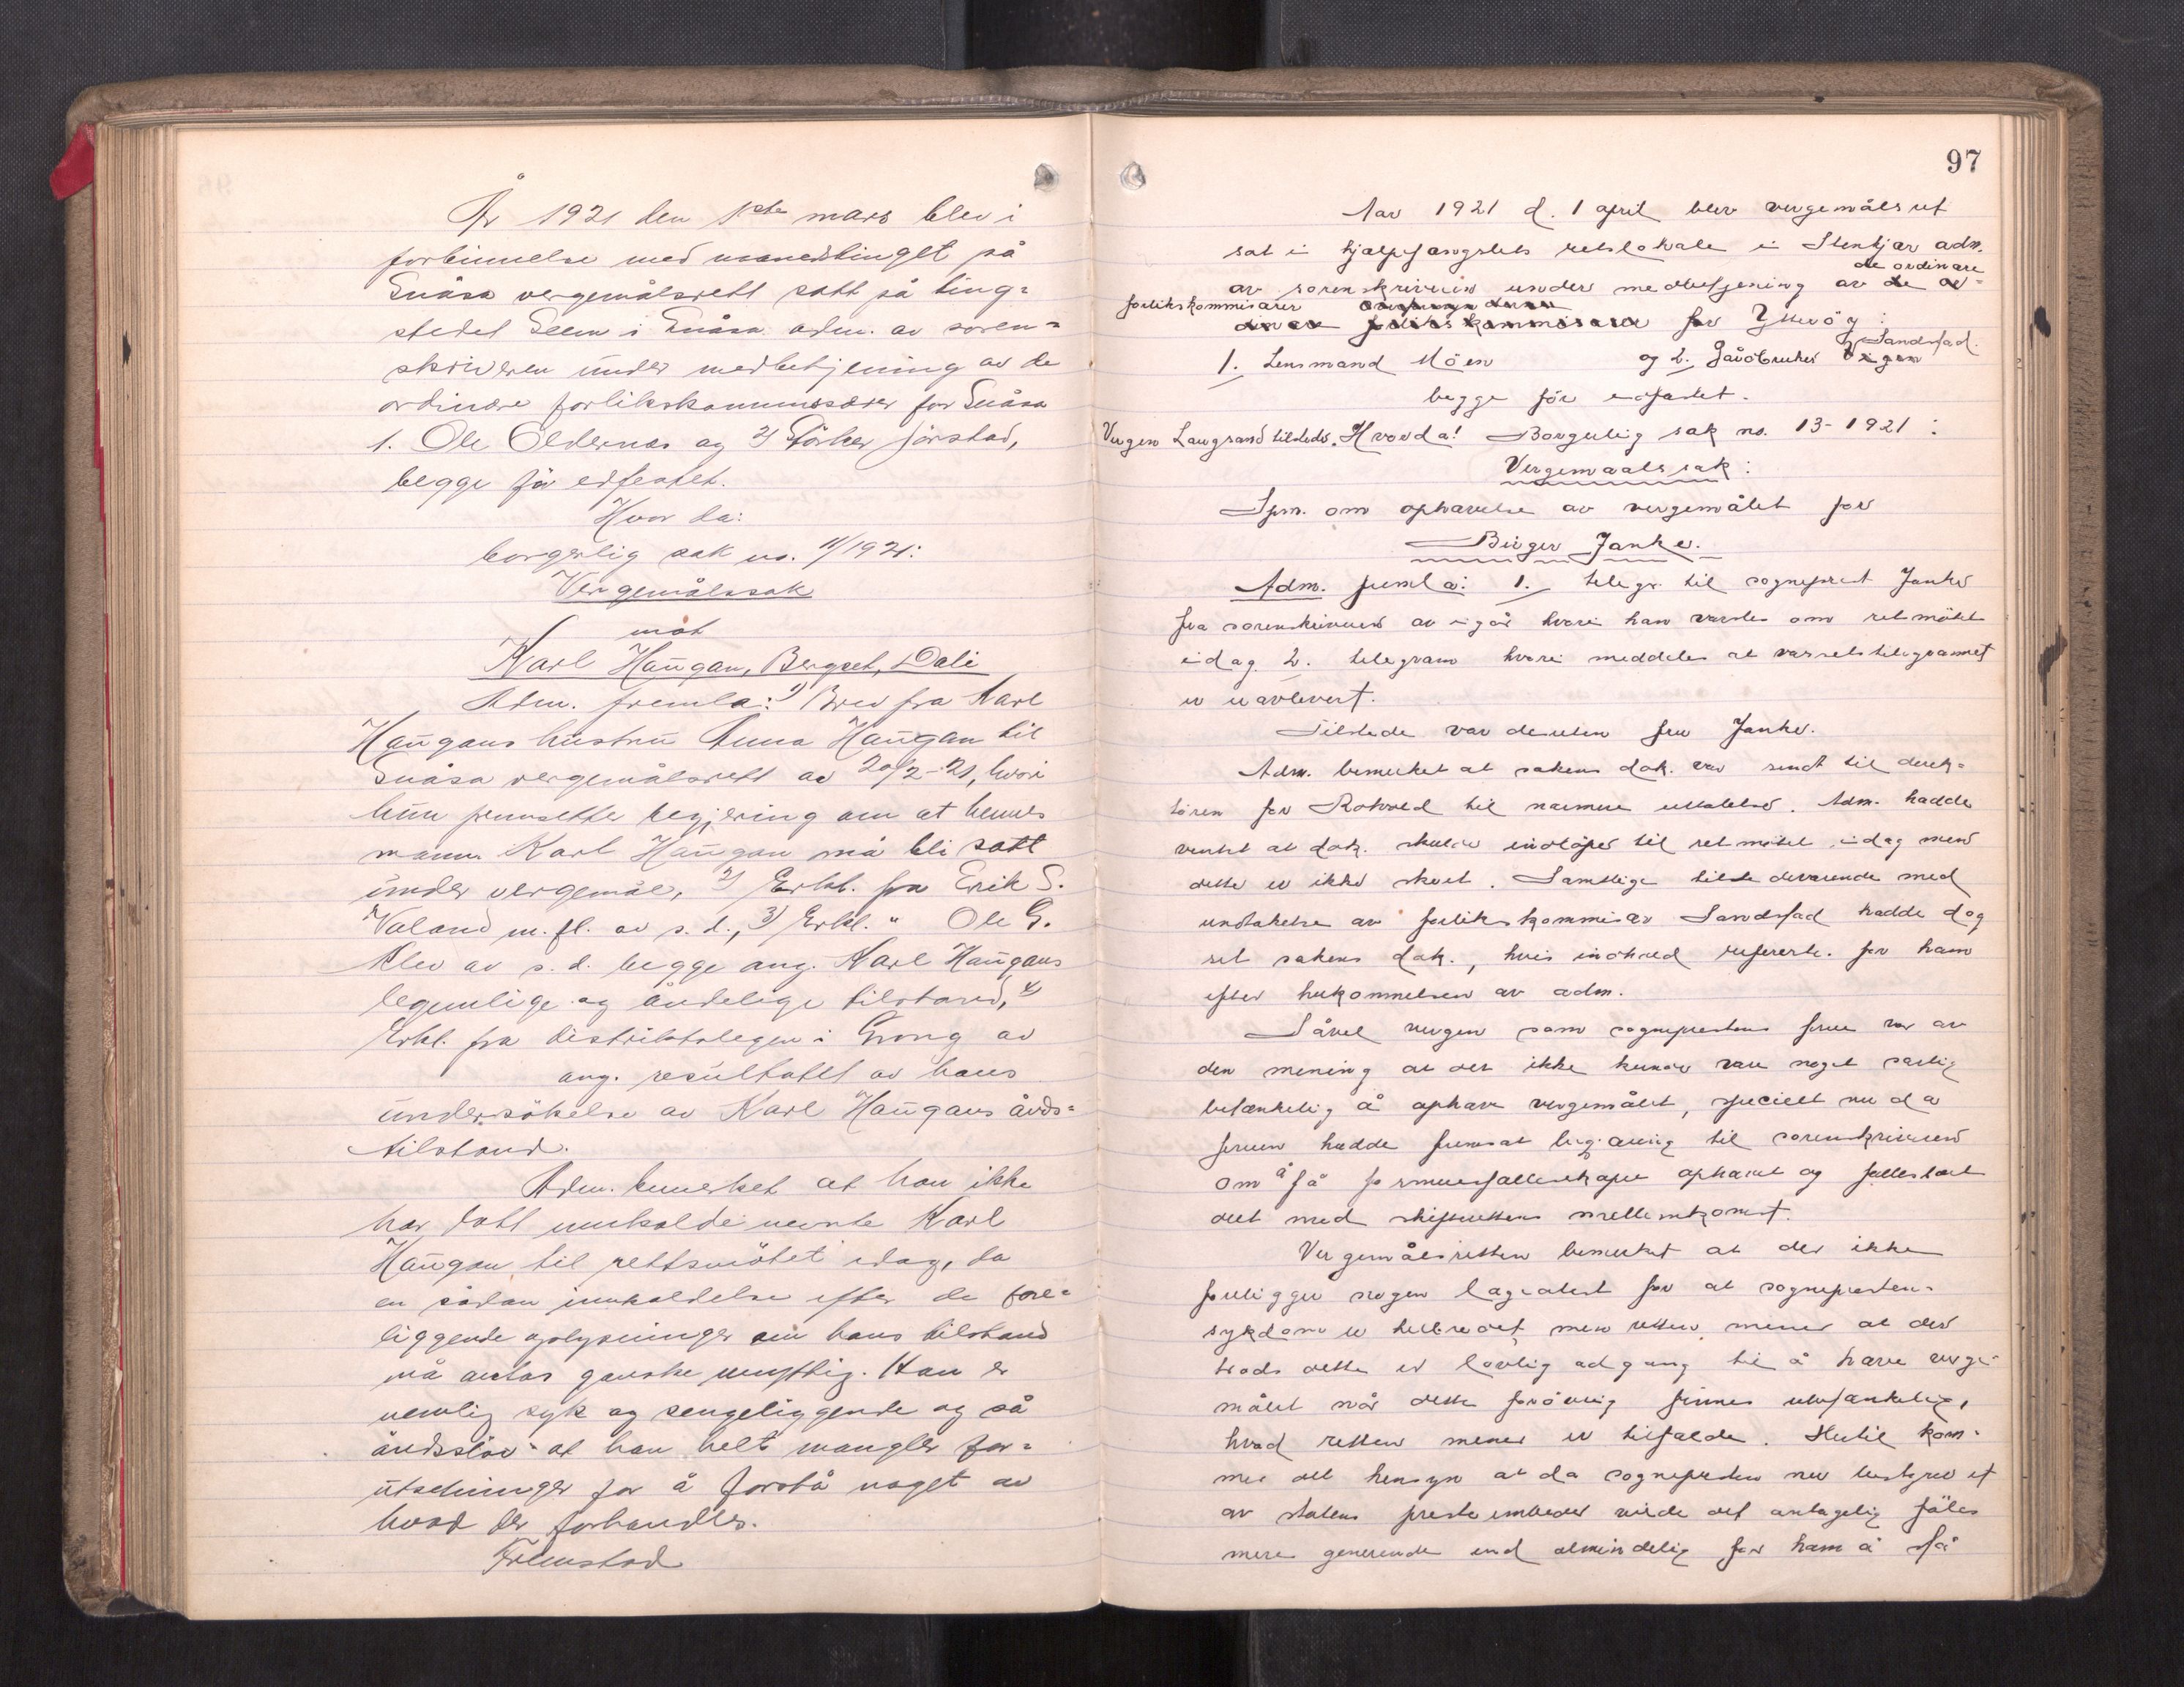 År 1921 den 1ste mars blev i
forbinnelse med maanedstinget på
Snåsa vergemålsrett satt på ting=
stedet Seem i Snåsa adm. av soren=
skriveren under medbetjening av de
ordinære forlikskommissærer for Snåsa
1. Ole Oldernes og 2/ Jörstad,
begge för edfestet.
Hvor da:
borgerlig sak no. 11/1921:
Vergemålssak
mot
Karl Haugan, Bergset, Dali
Adm. fremla: 1) Brev fra Karl
Haugans hustru Anna Haugan til
Snåsa vergemålsrett av 20/2-21, hvori
hun fremsetter begjering om at hennes
mann Karl Haugan må bli satt
under vergemål, 2) Erkl. fra Erik S.
Valand m. fl. av s. d., 3) Erkl. " Ole G.
Klev av s. d. begge ang. Karl Haugans
legemlige og åndelige tilstand, 4)
Erkl. fra distriktslegen i Grong av
ang. resultatet av hans
undersökelse av Karl Haugans ånds=
tilstand.
Adm. bemerket at han ikke
har latt innkalde nevnte Karl
Haugan til rettsmötet idag, da
en sådan innkaldelse efter de fore=
liggende oplysninger om hans tilstand
må antas ganske unyttig. Han er
nemlig syk og sengeliggende og så
åndsslöv at han helt mangler for=
utsetninger for å forstå noget av
hvad der forhandles.
97
Aar 1921 d. 1 april blev vergemålsret
sat i hjælpefængslets retslokale i Stenkjær adm.
de ordinære
av sorenskriveren under medbetjening av de or=
forlikskommisærer
dinære forlikskommisærer for Ytterög:
Sandstad.
1. Lensmand Möen og 2. Gårdbruker
begge för edfæstet.
Vergen Langrand tilstede. Hvorda! Borgerlig sak no. 13-1921:
Vergemaalssak:
Spm. om ophævelse av vergemålet for
Birger Janke.
Adm. femla: 1. telegr. til sogneprest Janke
fra sorenskriveren av igår hvori han varsles om retsmötet
idag 2. telegram hvori meddeles at varselstelegrammet
er uavlevert.
Tilstede var desuten fru Janke.
Adm. bemerket at sakens dok. var sendt til direk=
tören for Rotvold til nærmere uttalelse. Adm. hadde
ventet at dok. skulde indlöpe til retsmötet idag men
dette er ikke skeet. Samtlige tilstedeværende med
undtakelse av forlikskommisær Sandstad hadde dog
set sakens dok., hvis indhold refererte. for ham
efter hukommelsen av adm.
Såvel vergen som sogneprestens frue var av
den mening at det ikke kunde være noget særlig
betænkelig å ophæve vergemålet, specielt nu da
fruen hadde fremsat begjæring til sorenskriveren
om å få formuesfællesskapet ophævet og fællesboet
delt med skifterettens mellemkomst.
Vergemålsretten bemerket at der ikke
foreligger nogen lægeatest for at sogneprestens
sykdom er helbredet men retten mener at der
trods dette er lovlig adgang til å hæve verge=
målet når dette forövrig finnes ubetænkelig,
hvad retten mener er tilfælde. Hertil kom=
mer det hensyn at da sognepresten nu bestyrer et
av statens presteembeder vilde det antagelig föles
mere generende end almindelig for ham å stå